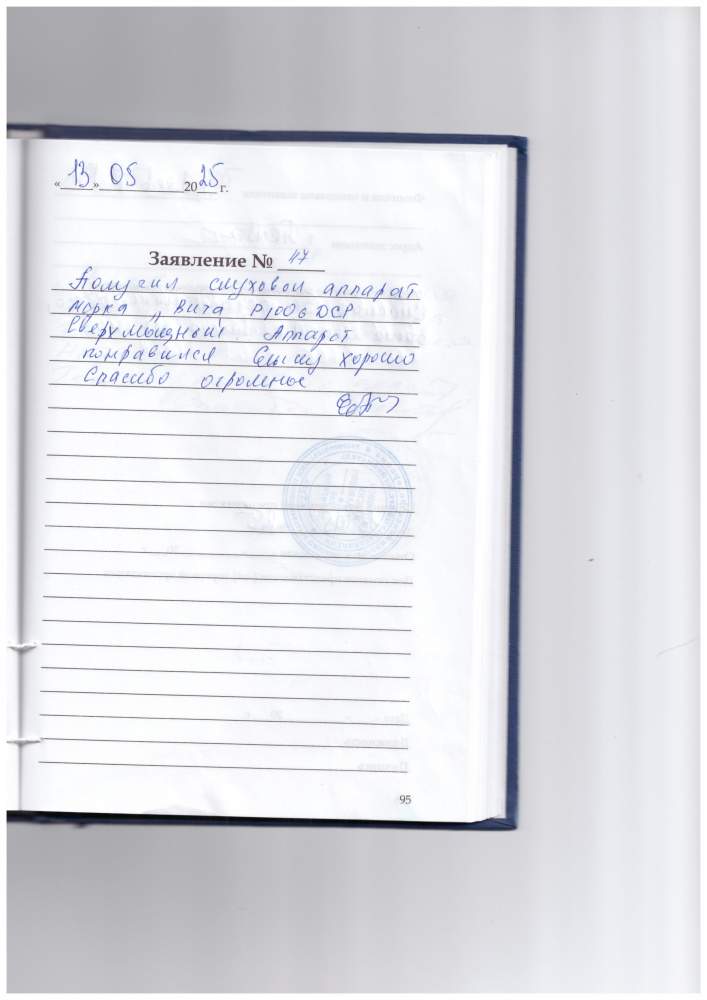 «13» 05 2025 г.
Заявление № 47
Получил слуховой аппарат
марка „ Вита Р100б DСР
Сверхмощный Аппарат
понравился Слышу хорошо
Спасибо огромное
95